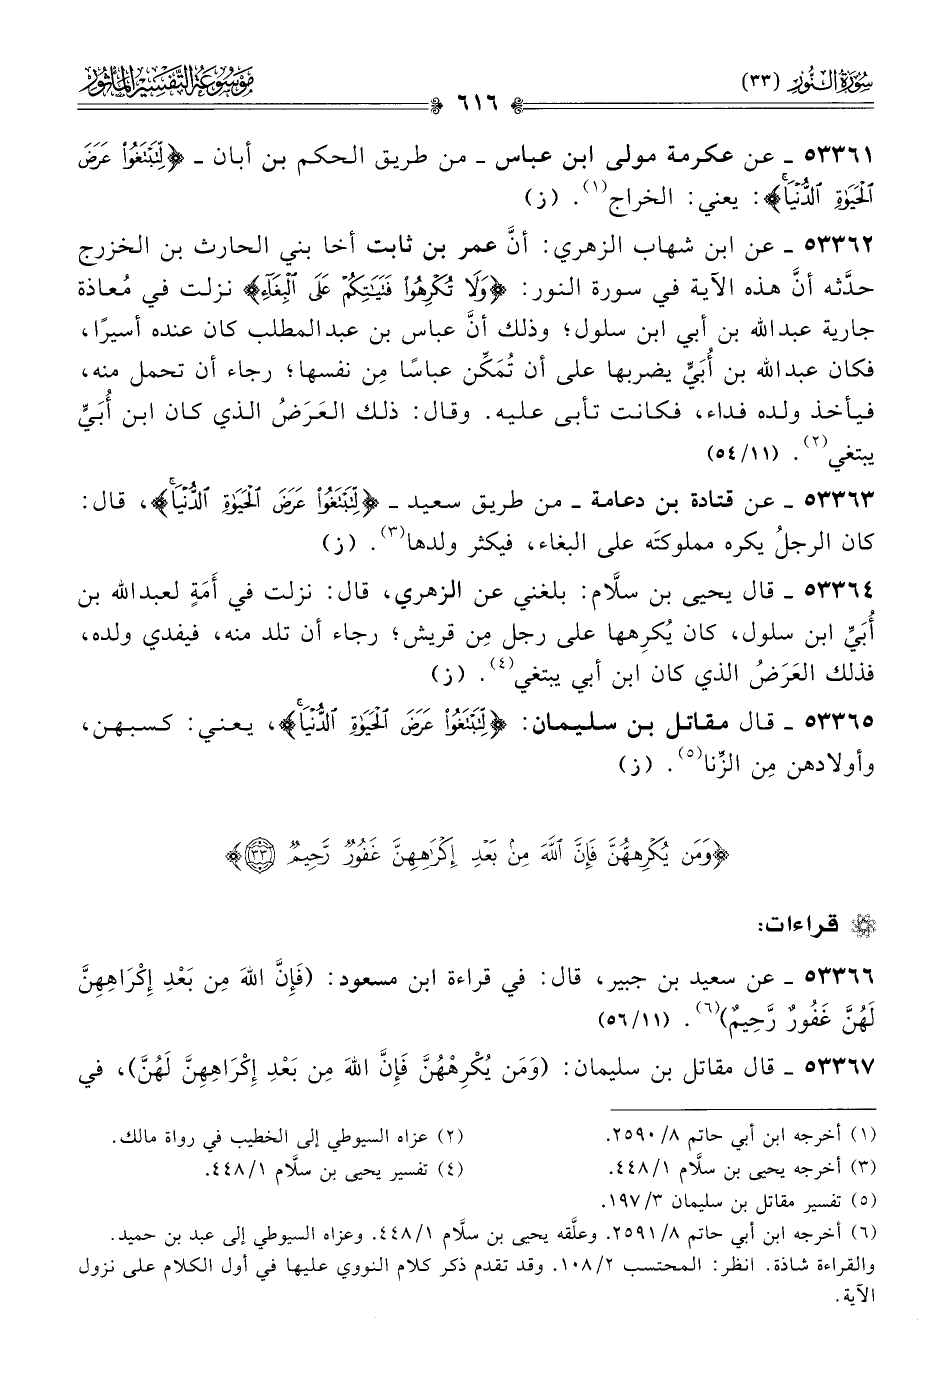 سُورَةُ النُّورِ (٣٣)
٦١٦
مَوْسُوعَةُ التَّفْسِيرِ المَأْثُورِ
٥٣٣٦١ ـ عن عكرمة مولى ابن عباس ـ من طريق الحكم بن أبان ـ ﴿لِّتَبْتَغُوا۟ عَرَضَ
ٱلْحَيَوٰةِ ٱلدُّنْيَاۚ﴾: يعني: الخراج(١). (ز)
٥٣٣٦٢ ـ عن ابن شهاب الزهري: أنَّ عمر بن ثابت أخا بني الحارث بن الخزرج
حدَّثه أنَّ هذه الآية في سورة النور: ﴿وَلَا تُكْرِهُوا۟ فَتَيَـٰتِكُمْ عَلَى ٱلْبِغَآءِ﴾ نزلت في مُعاذة
جارية عبدالله بن أبي ابن سلول؛ وذلك أنَّ عباس بن عبدالمطلب كان عنده أسيرًا،
فكان عبدالله بن أُبَيٍّ يضربها على أن تُمَكِّن عباسًا مِن نفسها؛ رجاء أن تحمل منه،
فيأخذ ولده فداء، فكانت تأبى عليه. وقال: ذلك العَرَضُ الذي كان ابن أُبَيٍّ
يبتغي(٢). (١١/ ٥٤)
٥٣٣٦٣ ـ عن قتادة بن دعامة ـ من طريق سعيد ـ ﴿لِّتَبْتَغُوا۟ عَرَضَ ٱلْحَيَوٰةِ ٱلدُّنْيَاۚ﴾، قال:
كان الرجلُ يكره مملوكتَه على البغاء، فيكثر ولدها(٣). (ز)
٥٣٣٦٤ ـ قال يحيى بن سلَّام: بلغني عن الزهري، قال: نزلت في أَمَةٍ لعبدالله بن
أُبَيِّ ابن سلول، كان يُكرِهها على رجل مِن قريش؛ رجاء أن تلد منه، فيفدي ولده،
فذلك العَرَضُ الذي كان ابن أبي يبتغي(٤). (ز)
٥٣٣٦٥ ـ قال مقاتل بن سليمان: ﴿لِّتَبْتَغُوا۟ عَرَضَ ٱلْحَيَوٰةِ ٱلدُّنْيَاۚ﴾، يعني: كسبهن،
وأولادهن مِن الزِّنا(٥). (ز)
﴿وَمَن يُكْرِههُّنَّ فَإِنَّ ٱللَّهَ مِنۢ بَعْدِ إِكْرَٰهِهِنَّ غَفُورٌ رَّحِيمٌ ٣٣﴾
قراءات:
٥٣٣٦٦ ـ عن سعيد بن جبير، قال: في قراءة ابن مسعود: (فَإِنَّ اللهَ مِن بَعْدِ إِكْرَاهِهِنَّ
لَهُنَّ غَفُورٌ رَّحِيمٌ)(٦). (١١/ ٥٦)
٥٣٣٦٧ ـ قال مقاتل بن سليمان: (وَمَن يُكْرِهْهُنَّ فَإِنَّ اللهَ مِن بَعْدِ إِكْرَاهِهِنَّ لَهُنَّ)، في
(١) أخرجه ابن أبي حاتم ٨/ ٢٥٩٠.
(٢) عزاه السيوطي إلى الخطيب في رواة مالك.
(٣) أخرجه يحيى بن سلَّام ١/ ٤٤٨.
(٤) تفسير يحيى بن سلَّام ١/ ٤٤٨.
(٥) تفسير مقاتل بن سليمان ٣/ ١٩٧.
(٦) أخرجه ابن أبي حاتم ٨/ ٢٥٩١. وعلَّقه يحيى بن سلَّام ١/ ٤٤٨. وعزاه السيوطي إلى عبد بن حميد.
والقراءة شاذة. انظر: المحتسب ٢/ ١٠٨. وقد تقدم ذكر كلام النووي عليها في أول الكلام على نزول
الآية.